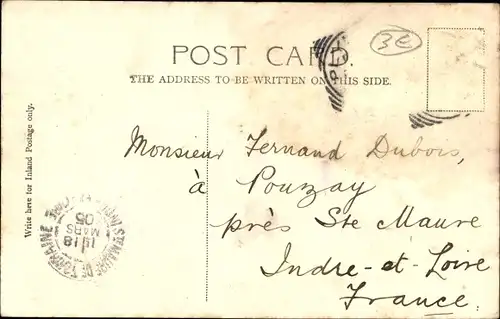 3E
POST CARD.
THE ADDRESS TO BE WRITTEN ON THIS SIDE.
Write here for Inland Postage only.
Monsieur Fernand Dubois,
à Pouzay
près Ste Maure
Indre-et-Loire
France.
STE MAURE DE TOURAINE
18
MARS
05